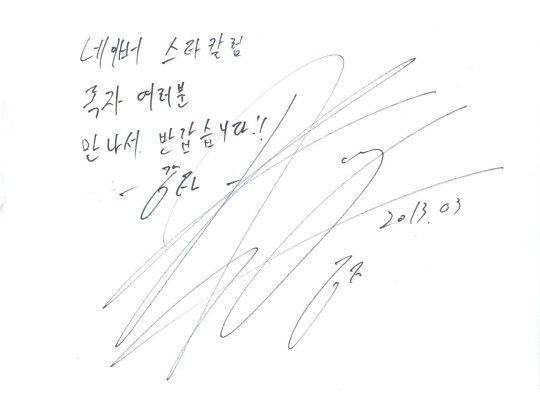 네이버 스타칼럼
독자 여러분
만나서 반갑습니다!!
- 강타 -
2013.03